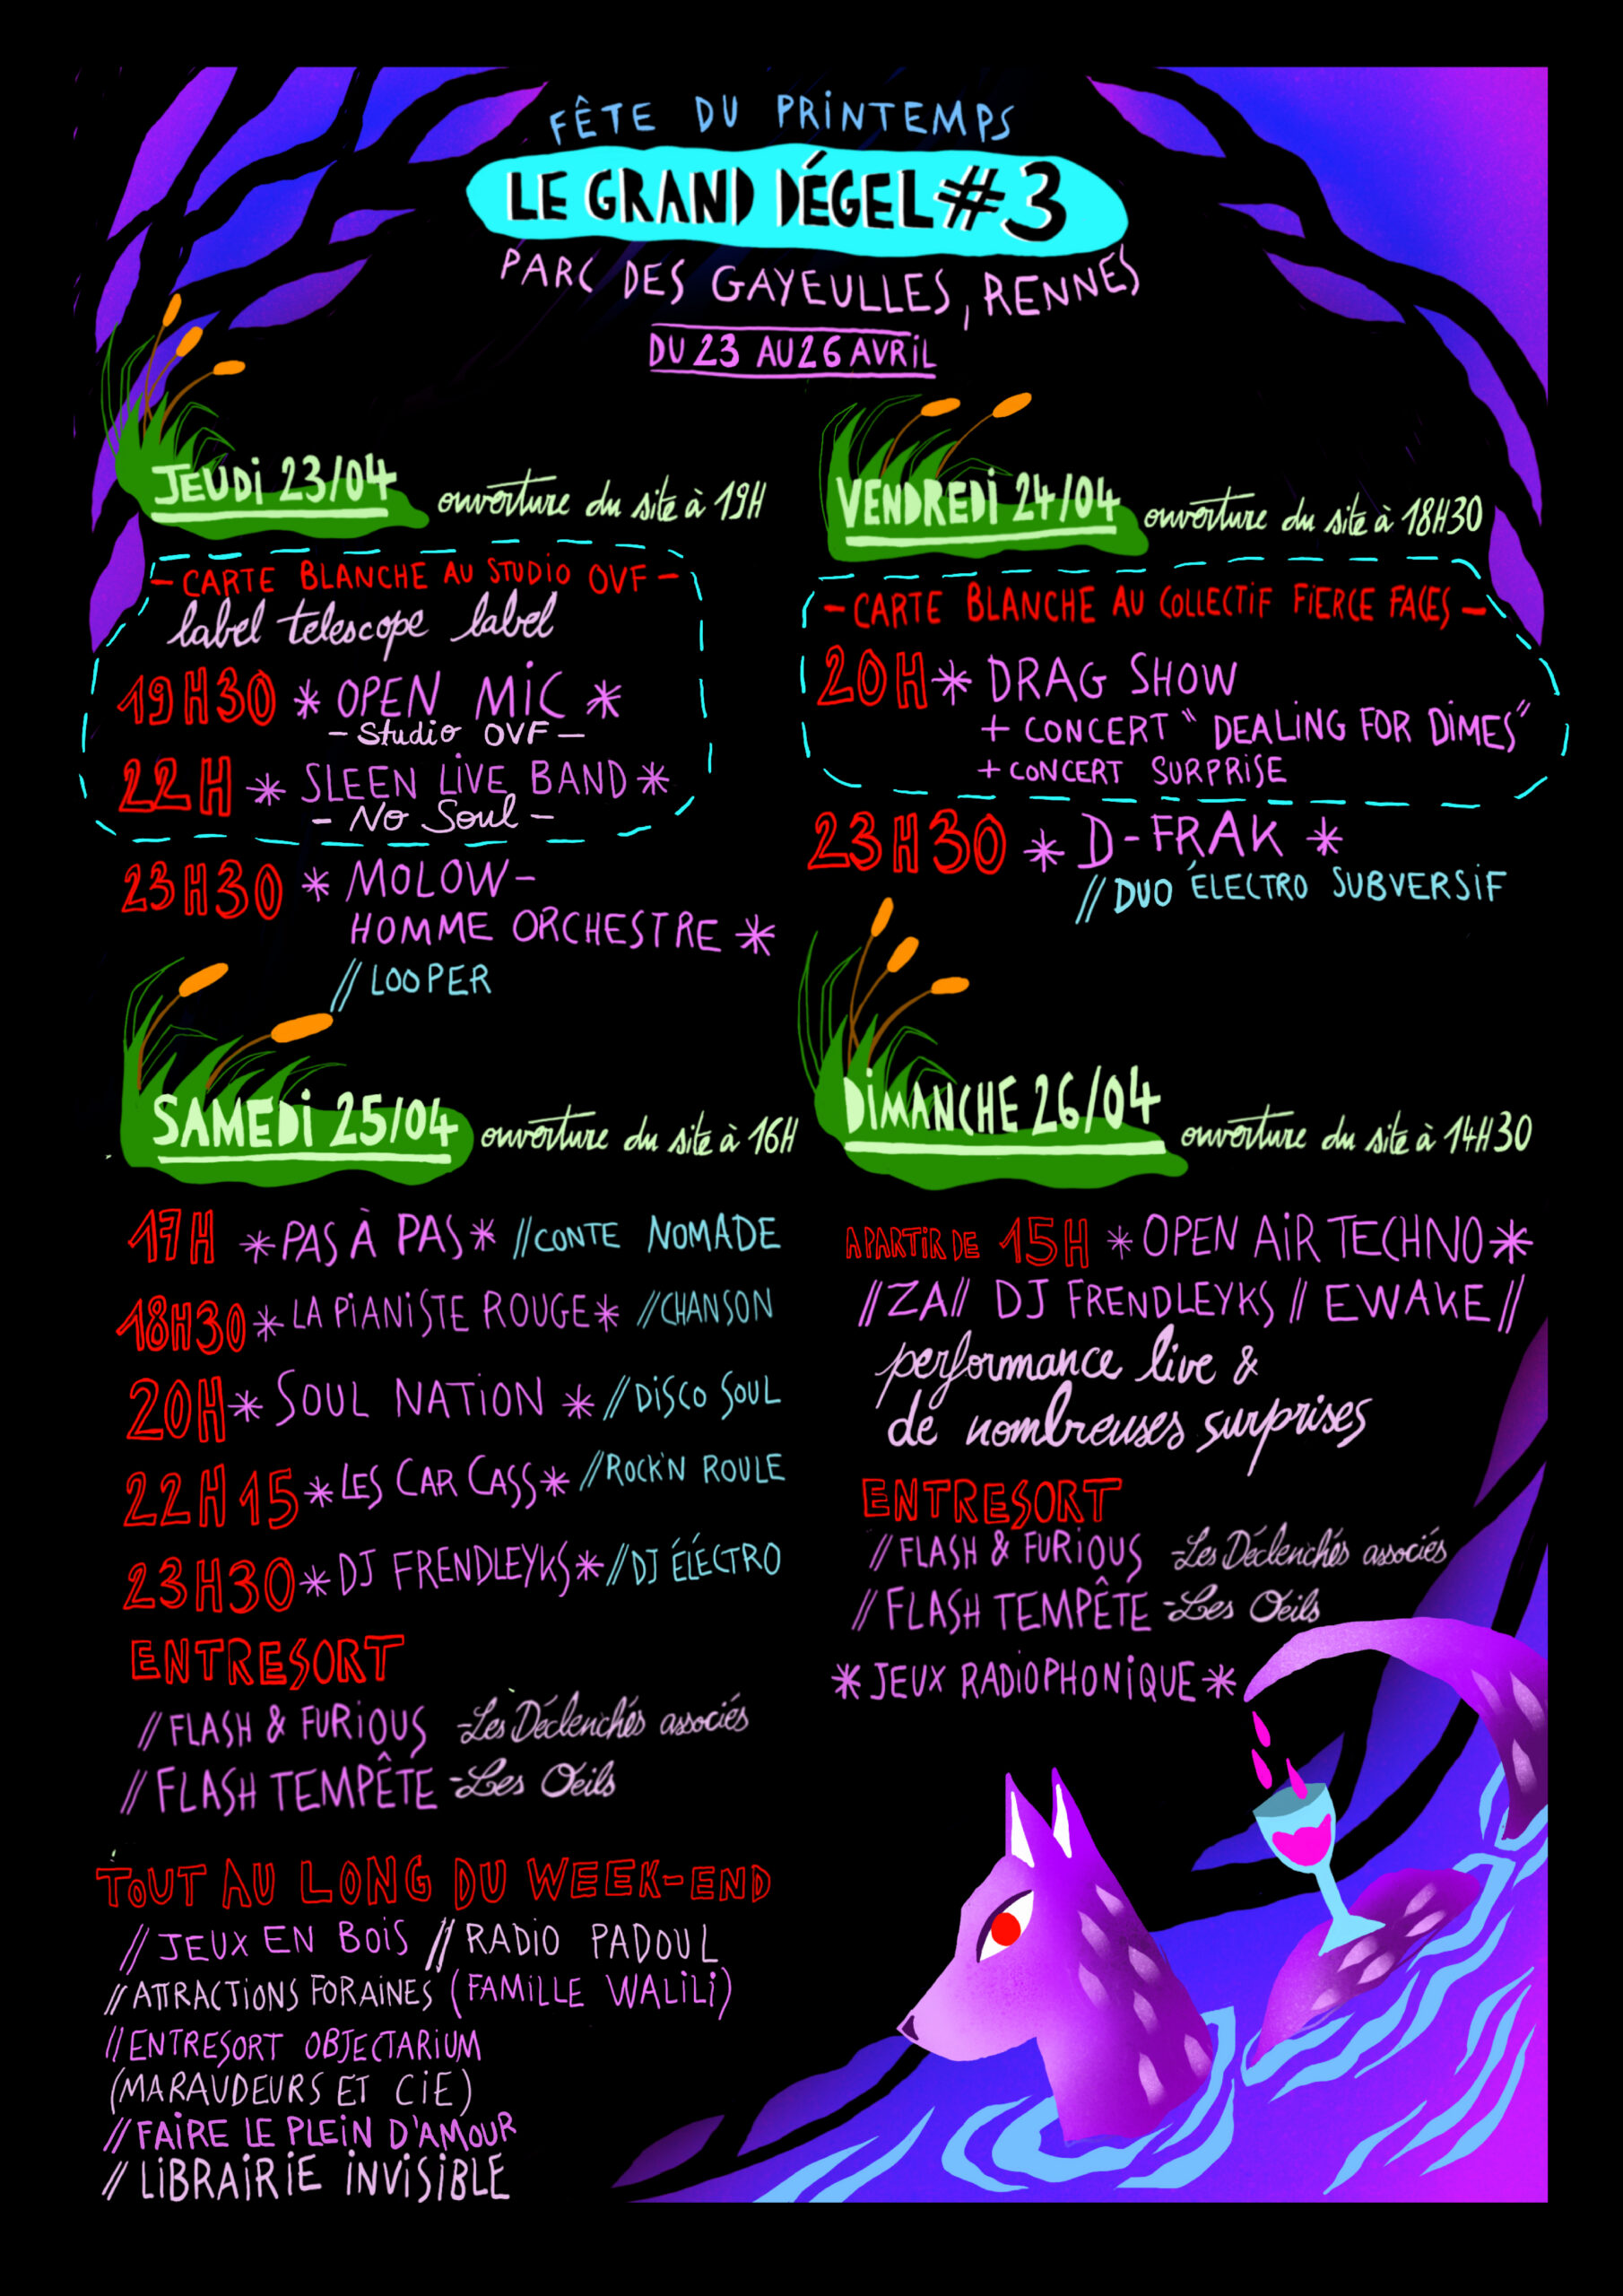 FÊTE DU PRINTEMPS
LE GRAND DÉGEL #3
PARC DES GAYEULLES, RENNES
DU 23 AU 26 AVRIL
JEUDI 23/04 ouverture du site à 19H
- CARTE BLANCHE AU STUDIO OVF -
label telescope label
19H30 * OPEN MIC *
- Studio OVF -
22H * SLEEN LIVE BAND *
- No Soul -
23H30 * MOLOW-
HOMME ORCHESTRE *
// LOOPER
VENDREDI 24/04 ouverture du site à 18H30
- CARTE BLANCHE AU COLLECTIF FIERCE FACES -
20H * DRAG SHOW
+ CONCERT " DEALING FOR DIMES"
+ CONCERT SURPRISE
23H30 * D-FRAK *
// DUO ÉLECTRO SUBVERSIF
SAMEDI 25/04 ouverture du site à 16H
17H * PAS À PAS * // CONTE NOMADE
18H30 * LA PIANISTE ROUGE * // CHANSON
20H * SOUL NATION * // DISCO SOUL
22H15 * LES CAR CASS * // ROCK'N ROULE
23H30 * DJ FRENDLEYKS * // DJ ÉLÉCTRO
ENTRESORT
// FLASH & FURIOUS - Les Déclenchés associés
// FLASH TEMPÊTE - Les Oeils
TOUT AU LONG DU WEEK-END
// JEUX EN BOIS // RADIO PADOUL
// ATTRACTIONS FORAINES (FAMILLE WALILI)
// ENTRESORT OBJECTARIUM
(MARAUDEURS ET CIE)
// FAIRE LE PLEIN D'AMOUR
// LIBRAIRIE INVISIBLE
DIMANCHE 26/04 ouverture du site à 14H30
A PARTIR DE 15H * OPEN AIR TECHNO *
// ZA // DJ FRENDLEYKS // EWAKE //
performance live &
de nombreuses surprises
ENTRESORT
// FLASH & FURIOUS - Les Déclenchés associés
// FLASH TEMPÊTE - Les Oeils
* JEUX RADIOPHONIQUE *